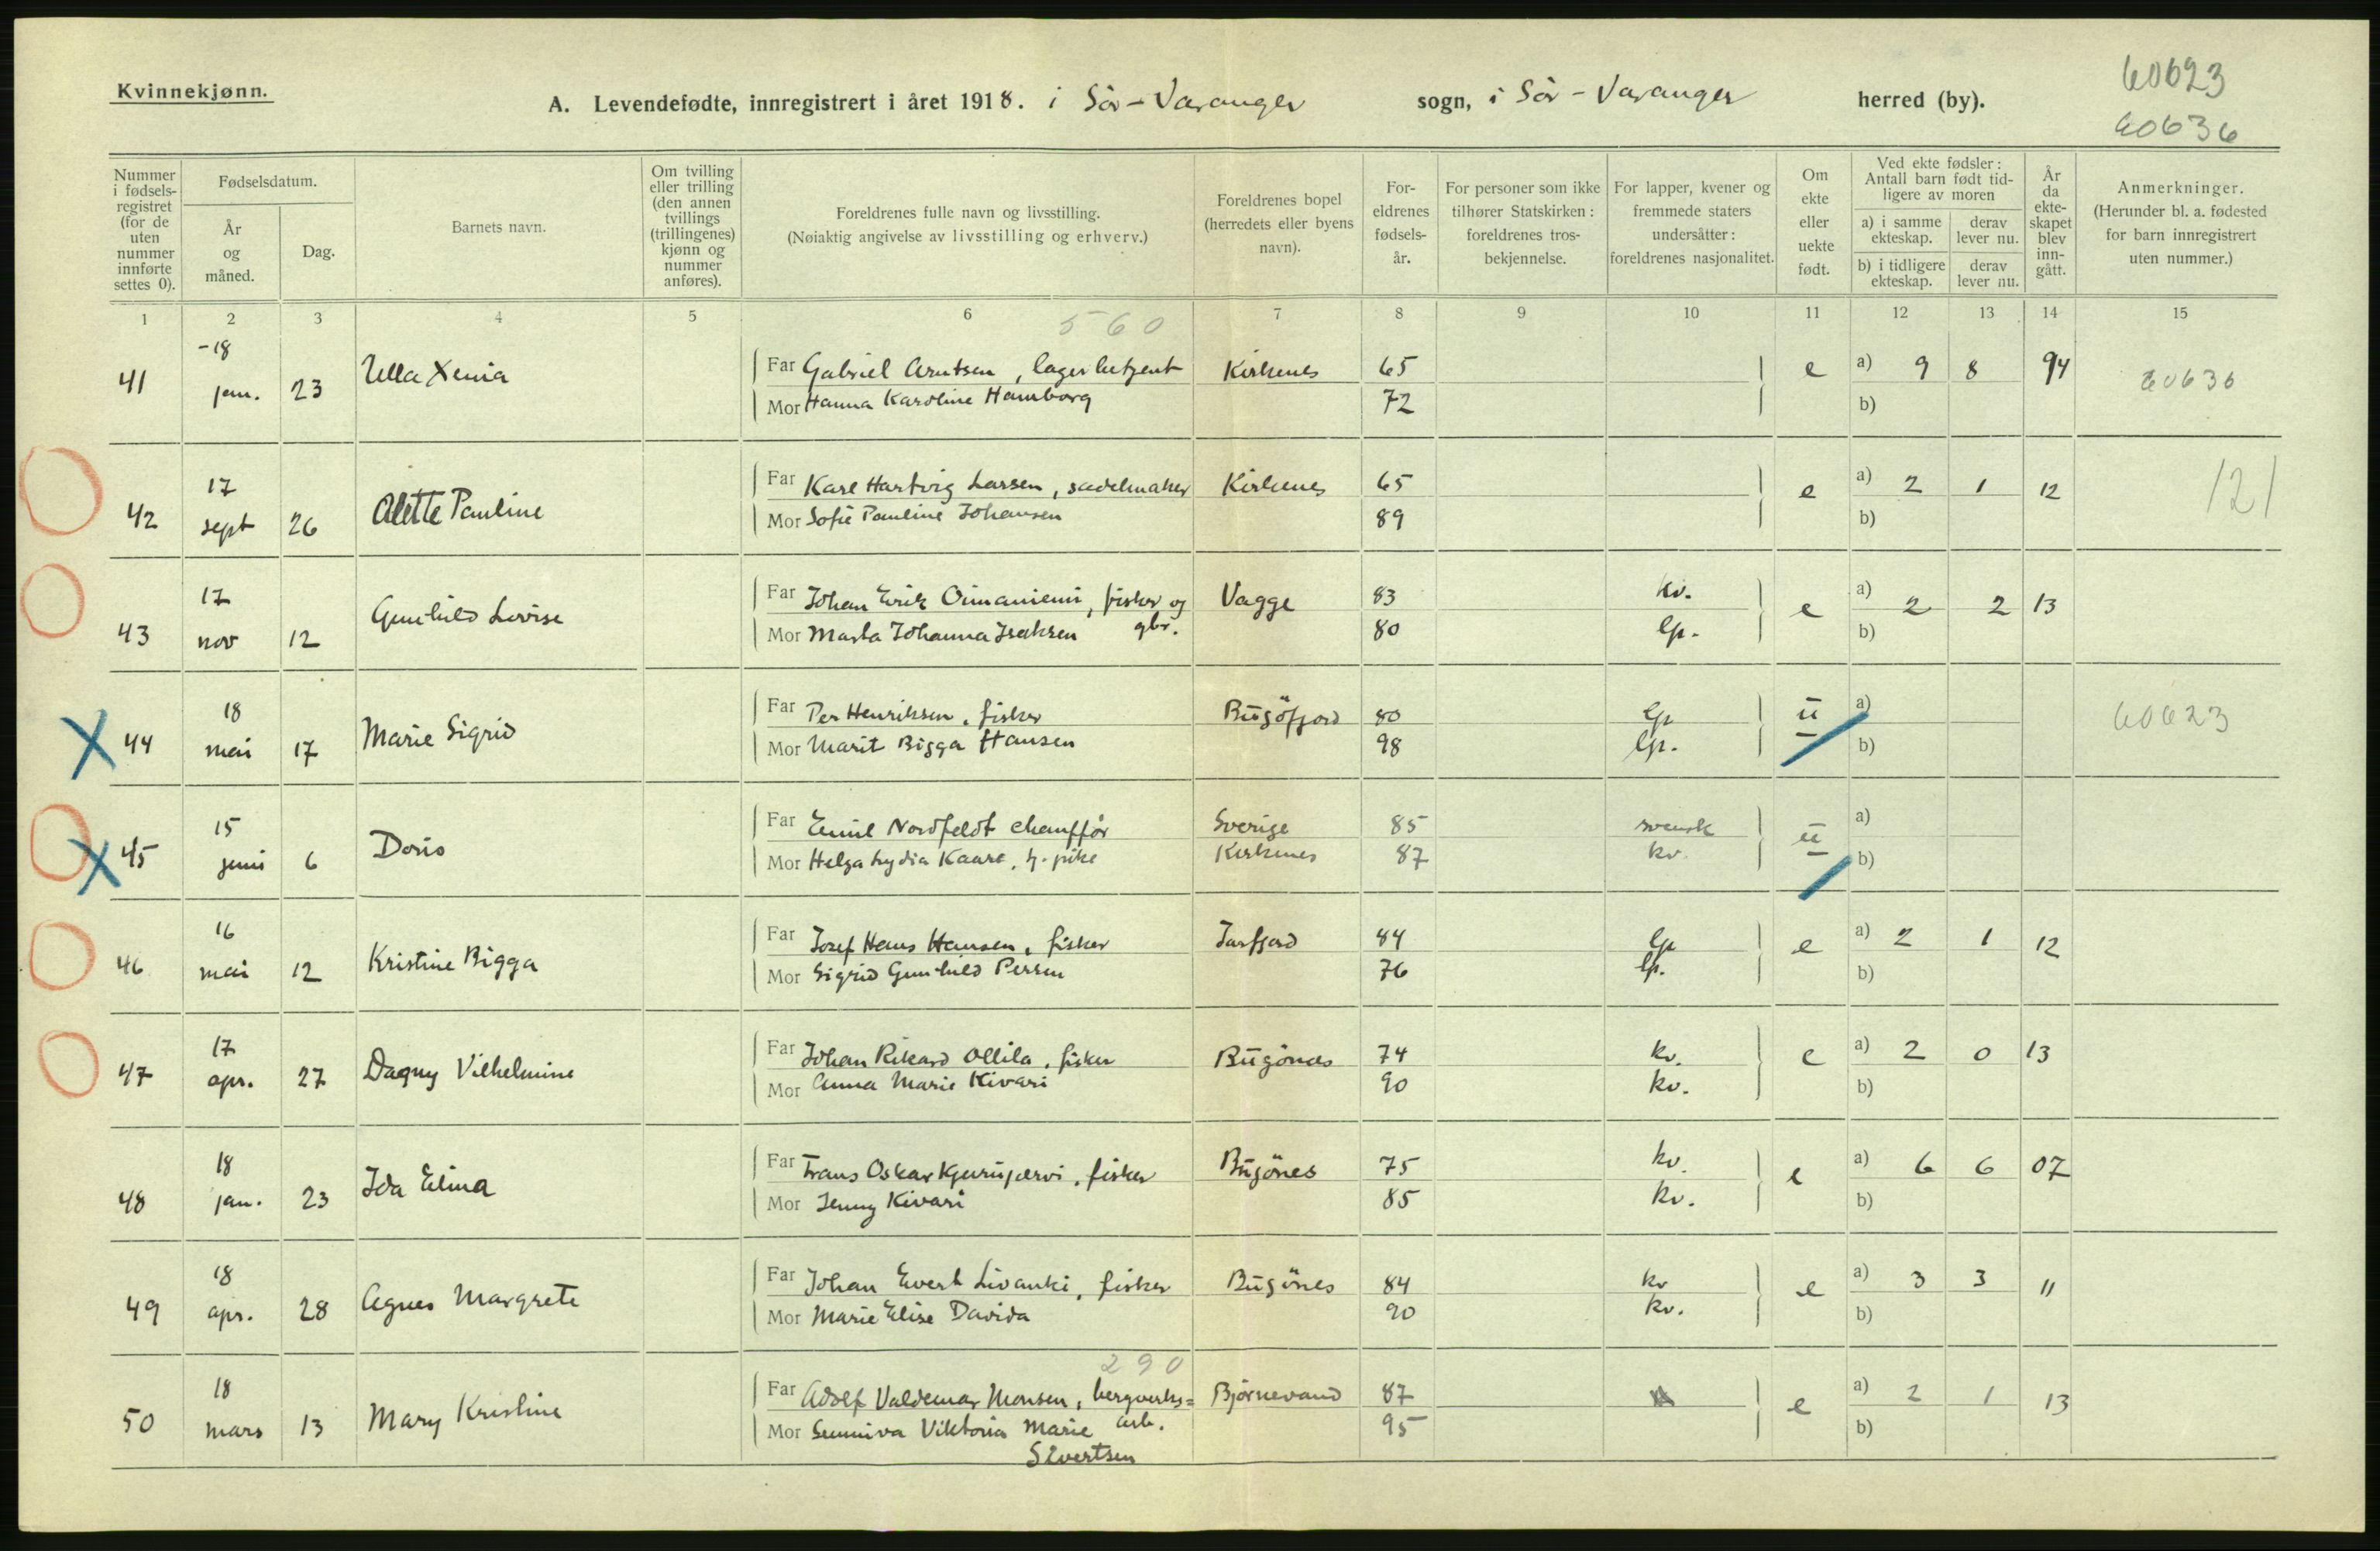 Kvinnekjønn.
A. Levendefødte, innregistrert i året 1918. i Sör-Varanger sogn, i Sör-Varanger herred (by).
60623
60636
Nummer i fødsels-registret (for de uten nummer innførte settes 0).
Fødselsdatum.
År og måned.
Dag.
Barnets navn.
Om tvilling eller trilling (den annen tvillings (trillingenes) kjønn og nummer anføres).
Foreldrenes fulle navn og livsstilling.
(Nøiaktig angivelse av livsstilling og erhverv.)
Foreldrenes bopel (herredets eller byens navn).
For-eldrenes fødsels-år.
For personer som ikke tilhører Statskirken: foreldrenes tros-bekjennelse.
For lapper, kvener og fremmede staters undersåtter: foreldrenes nasjonalitet.
Om ekte eller uekte født.
Ved ekte fødsler: Antall barn født tid-ligere av moren
a) i samme ekteskap. derav lever nu.
b) i tidligere ekteskap. derav lever nu.
År da ekte-skapet blev inn-gått.
Anmerkninger.
(Herunder bl. a. fødested for barn innregistrert uten nummer.)
1 2 3 4 5 6 7 8 9 10 11 12 13 14 15
560
41 -18 jan. 23 Ulla Xenia
Far Gabriel Arntsen, lagerbetjent Kirkenes 65 e a) 9 8 94 60636
Mor Hanna Karoline Hamborg 72 b)
42 17 sept 26 Alette Pauline
Far Karl Hartvig Larsen, sadelmaker Kirkenes 65 e a) 2 1 12 121
Mor Sofie Pauline Johansen 89 b)
43 17 nov 12 Gunhild Lovise
Far Johan Erik Oimaniemi, fisker og gbr. Vagge 83 kv. e a) 2 2 13
Mor Marta Johanna Isaksen 80 lp. b)
44 18 mai 17 Marie Sigrid
Far Per Henriksen, fisker Bugöfjord 80 lp u a) 60623
Mor Marit Bigga Hansen 98 lp. b)
45 15 juni 6 Doris
Far Emil Nordfeldt chaufför Sverige 85 svensk u a)
Mor Helga Lydia Kaare, tj. pike Kirkenes 87 kv. b)
46 16 mai 12 Kristine Bigga
Far Josef Hans Hansen, fisker Jarfjord 84 lp e a) 2 1 12
Mor Sigrid Gunhild Persen 76 lp. b)
47 17 apr. 27 Dagny Vilhelmine
Far Johan Rikard Ollila, fisker Bugönes 74 kv. e a) 2 0 13
Mor Anna Marie Kivari 90 kv. b)
48 18 jan. 23 Ida Elina
Far Frans Oskar Kjerujærvi, fisker Bugönes 75 kv. e a) 6 6 07
Mor Jenny Kivari 85 kv. b)
49 18 apr. 28 Agnes Margrete
Far Johan Evert Livanki, fisker Bugönes 84 kv e a) 3 3 11
Mor Marie Elise Davida 90 kv. b)
290
50 18 mars 13 Mary Kristine
Far Adolf Valdemar Monsen, bergverks= arb. Björnevand 87 e a) 2 1 13
Mor Sunniva Viktoria Marie Sivertsen 95 b)